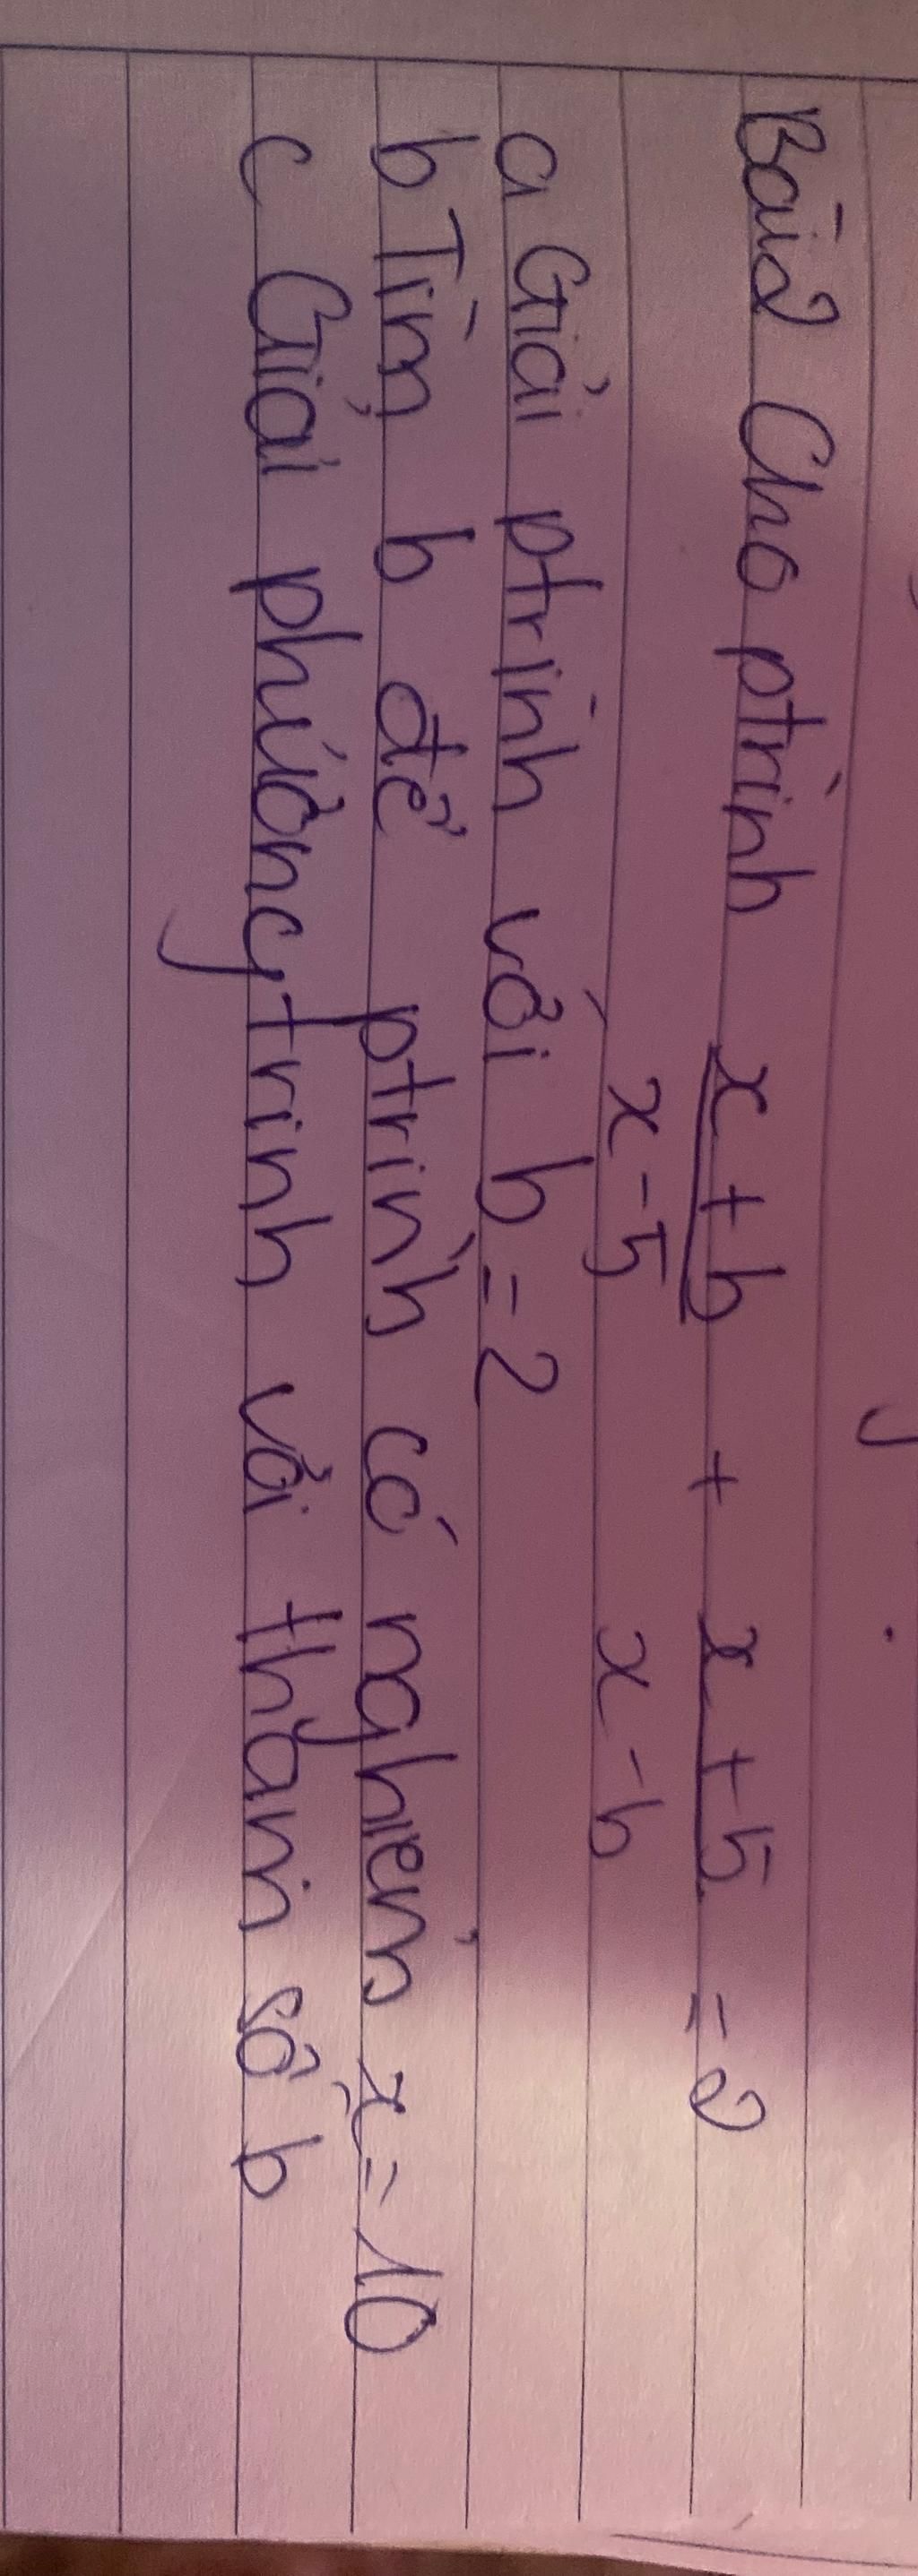 Bài 2 Cho ptrình x + b + x + 5 = 2
x - 5 x - b
a Giải ptrình với b = 2
b Tìm b để ptrình có nghiệm x = 10
c Giải phương trình với tham số b